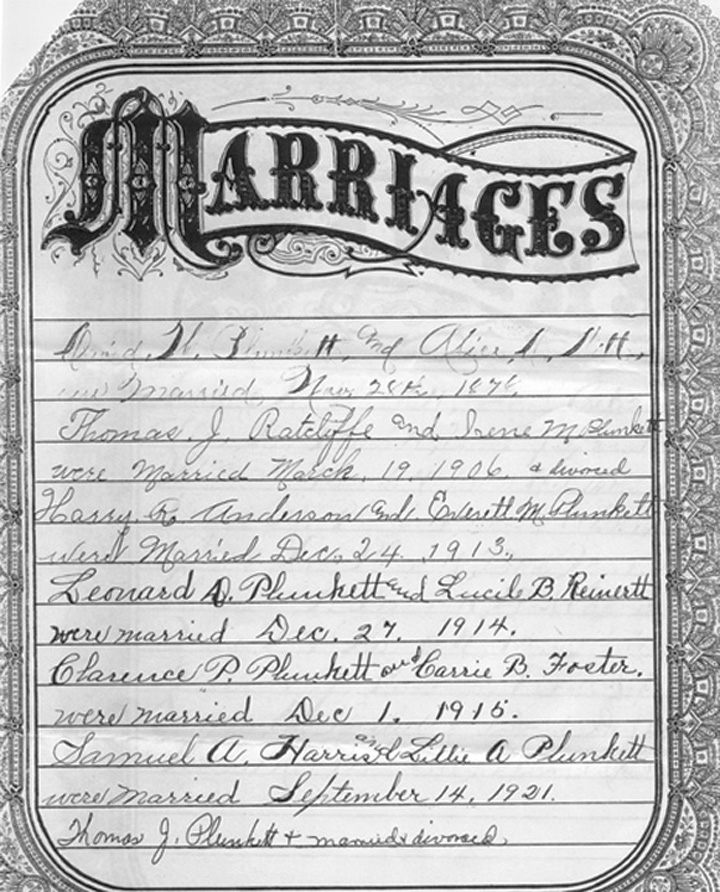 MARRIAGES
David. H. Plunkett, and Alice, A,
Married, Nov, 28th, 187
Thomas. J. Ratcliffe and Irene M Plunkett
were Married March, 19, 1906. & divoced
Harry R. Anderson and. Everett M. Plunkett
were Married Dec, 24, 1913,
Leonard D. Plunkett and Lucile B. Reinertt
were married Dec. 27. 1914.
Clarence P. Plunkett and Carrie B. Foster.
were married Dec 1. 1915.
Samuel A. Harris and Lillie A Plunkett
were Married September 14, 1921.
Thomas J. Plunkett + married & divorced,